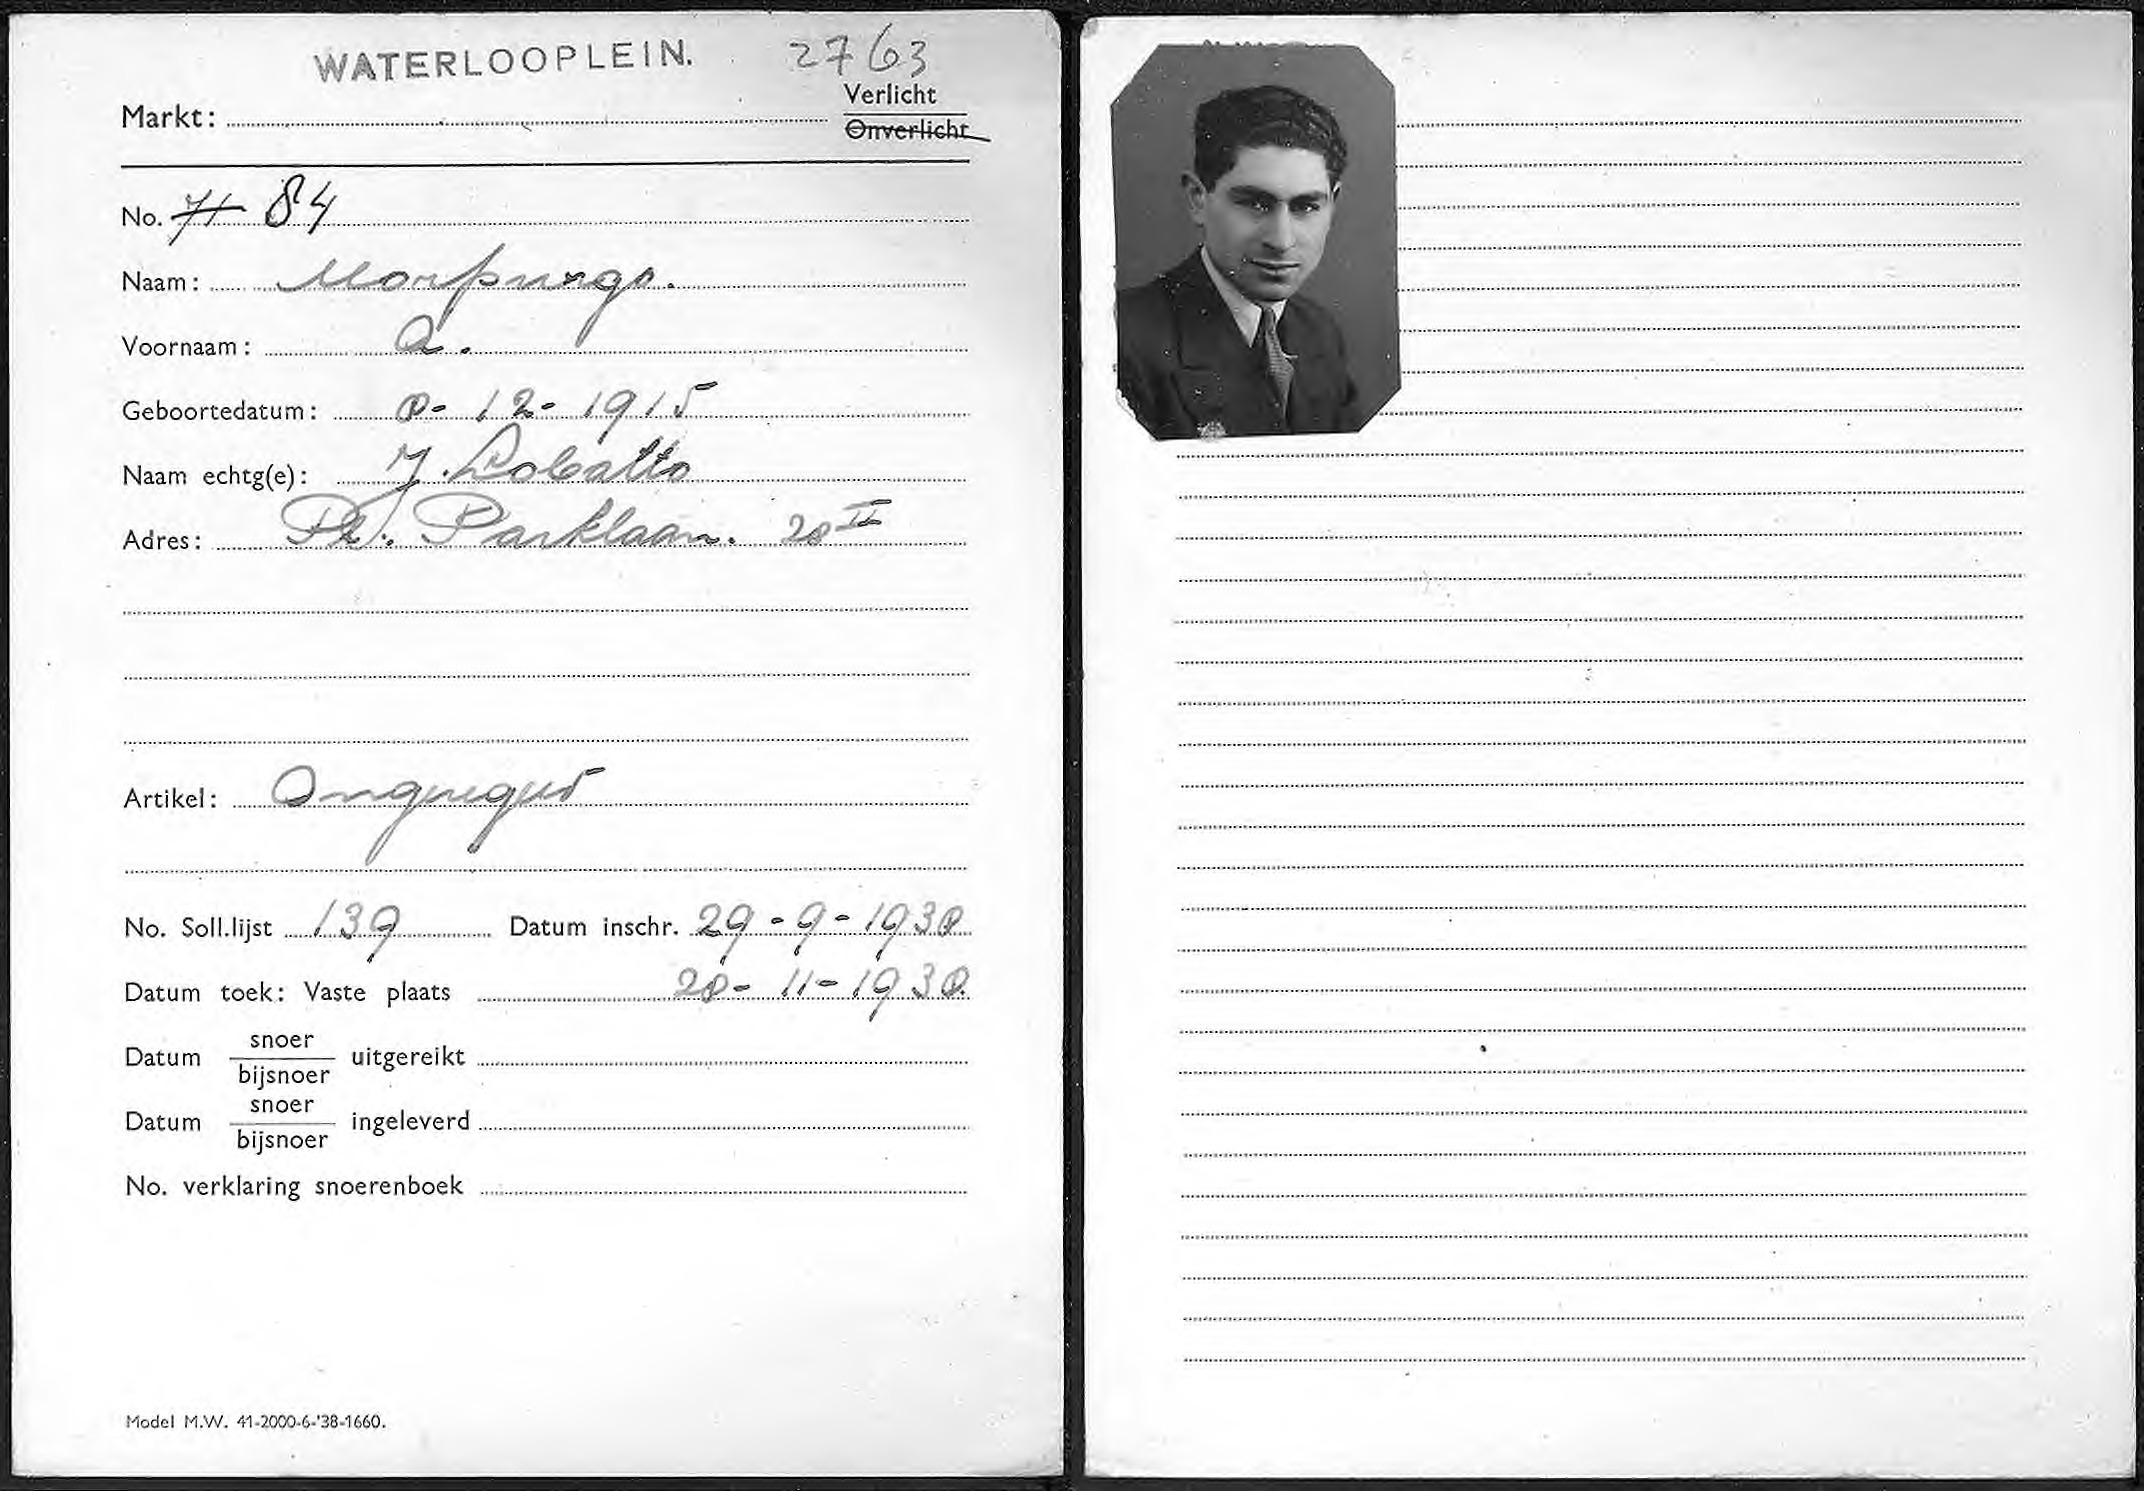 WATERLOOPLEIN. 2763
Markt: Verlicht
Onverlicht
No. 71 84
Naam: Morpurgo.
Voornaam: A.
Geboortedatum: 8-12-1915
Naam echtg(e): J. Lobatto
Adres: Pl. Parklaan. 28 II
Artikel: Ongeregeld
No. Soll.lijst 139 Datum inschr. 29-9-1938
Datum toek: Vaste plaats 28-11-1938.
Datum snoer/bijsnoer uitgereikt
Datum snoer/bijsnoer ingeleverd
No. verklaring snoerenboek
Model M.W. 41-2000-6-'38-1660.